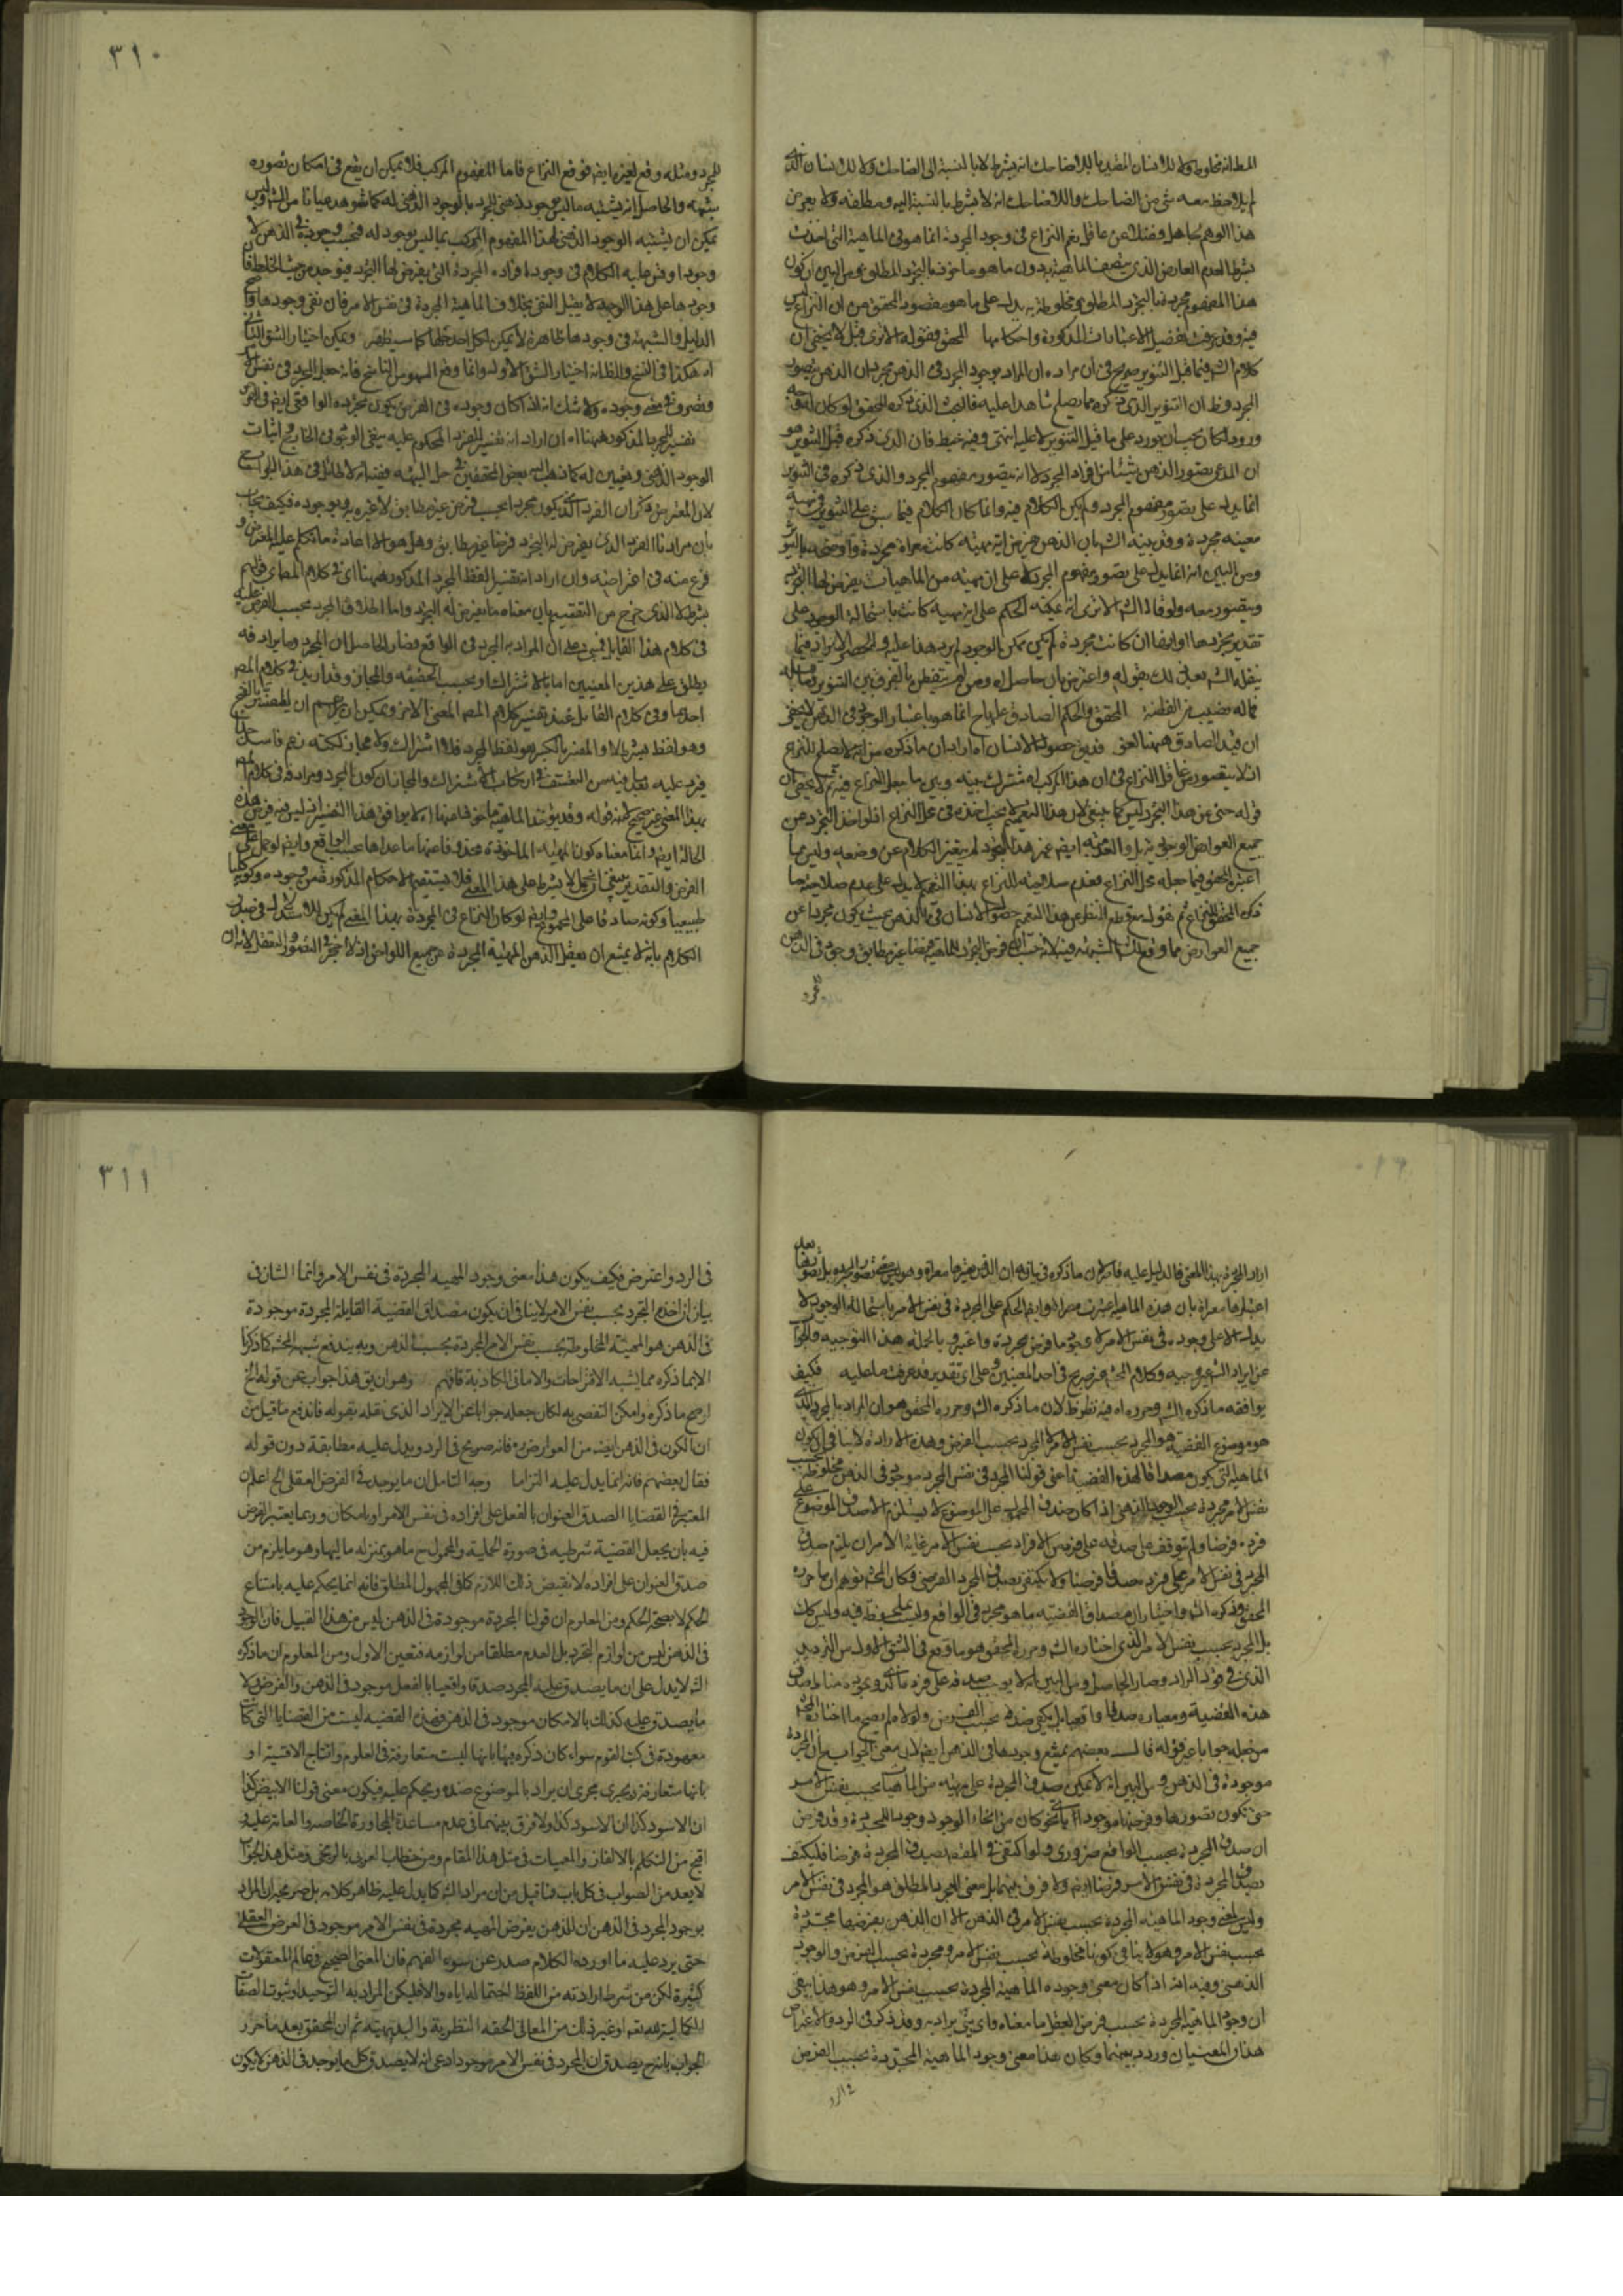 المطلقة مخلوطة ولا للانسان المقيد باللاضاحك انه بشرط لا بالنسبة الى الضاحك ولا للانسان الذى
لم يلاحظ معه شئ من الضاحك واللاضاحك انه لا بشرط بالنسبة اليه ومطلقة ولا يعرض
هذا الوهم لجاهل فضلا عن عاقل نعم النزاع فى وجود المجردة انما هو فى الماهية التى اخذت
بشرط العدم العارض الذى يتصف الماهية بدون ما هو ماخوذ بالتجرد المطلق ومن البين ان كون
هذا المفهوم مجردة بالتجرد المطلق ومخلوطة به يدل على ما هو مقصود المحقق من ان النزاع ليس
فيه وقد عرفت تفصيل الاعتبارات المذكورة واحكامها المحقق فقوله الاترى قيل لا يخفى ان
كلام الش فيما قبل التنوير صريح فى ان مراده ان المراد بوجود المجرد فى الذهن مجرد ان الذهن يتصور
المجرد وظ ان التنوير الذى ذكره مما يصلح شاهدا عليه فالبحث الذى ذكره المحقق لو كان له وجه
ورود لكان يجب ان يورد على ما قبل التنوير لا عليه انتهى وفيه خبط فان الذى ذكره قبل التنوير هو
ان المدعى تصور الذهن شيئا من افراد المجرد لا انه يتصور مفهوم المجرد والذى ذكره فى التنوير
انما يدل على تصور مفهوم المجرد ولم يكن الكلام فيه وانما كان الكلام فيما سبق على التنوير فى مهية
معينه مجردة وقد بينه الش بان الذهن يفرض اية مهية كانت معراة مجردة واوضحه بالتنوير
ومن البين انه انما يدل على تصور مفهوم المجرد لا على ان مهية من الماهيات يفرض لها التجرد
ويتصور معه ولو قال الش الاترى انه يمكنه الحكم على اية مهية كانت باستحالة الوجود على
تقدير تجردها او ايضا ان كانت مجردة لم يكن ممكن الوجود لم يرد هذا عليه
ينقله الش بعيل ذلك بقوله واعترض بان حاصله ومن لم يتفطن بالفرق بين التنوير وما قبله
فما له نصيب من الفطنة المحقق والحكم الصادق عليها ح انما هو باعتبار الوجود فى الذهن لا يخفى
ان قيد الصادق ههنا لغو
ان لا يتصور من عاقل النزاع فى ان هذا المركب
قوله حتى عن هذا التجرد ليس كما ينبغى لان هذا التعميم لا يجب اخذه فى محل النزاع اذ لو اخذ التجرد عن
جميع العوارض الوجودية بل والعدمية ايضا غير هذا التجرد لم يتغير الكلام عن وضعه وليس مما
اعتبره المحقق فيما جعله محل النزاع فعدم صلاحيته للنزاع بهذا التعميم لا يدل على عدم صلاحية ما
ذكره المحقق للنزاع ثم نقول مع قطع النظر عن هذا التعميم حصول الانسان فى الذهن بحيث يكون مجردا عن
جميع العوارض مما وقع تلك الشبهة فيه لانه ح فرض التجرد للماهية فرضا غير مطابق وجوز فى الذهن
المجرد
٣١٠
المجرد ومثله وقع لغيره ايضا فوقع النزاع فاما المفهوم المركب فلا يمكن ان يقع فى امكان تصوره
شبهة والحاصل انه يشتبه ما ليس موجود ذهنى للمجرد بالوجود الذهنى له كما شوهد عيانا من الش وليس
يمكن ان يشتبه الوجود الذهنى لهذا المفهوم المركب بما ليس بوجود له فبحسب وجوده فى الذهن لا
وجود ما على هذا الوجه لا يقبل النفى بخلاف الماهية المجردة فى نفس الامر فان نفى وجودها واضح
الدليل والشبهة فى وجودها ظاهرة لا يمكن لكل احد حلها كما سيظهر ويمكن اختيار الشق الثانى
اه هكذا فى النسخ والمظ انه اختيار الشق الاول وانما وقع السهو من الناسخ فانه جعل المجرد فى نفس الامر
وتصرف فى معنى وجوده ولا شك انه اذا كان وجوده فى الفرض يكون تجرده الواقعى ايضا فى الفرض
تفسير المجرد بالمذكور ههنا اه ان اراد انه تفسير للفرد المحكوم عليه بنفى الوجود فى الخارج واثبات
الوجود الذهنى وتعيين له كما ذهب اليه بعض المحققين فى حل الشبهة فقيه انه لا طائل فى هذا الجواب
لان المعترض ذكر ان الفرد الذى يكون مجردا بحسب فرض غير مطابق لا غيره يريد وجوده فكيف يجاب
بان مرادنا الفرد الذى يفرض له التجرد فرضا غير مطابق وهل هو الا اعادة ما تكلم عليه المعترض و
فرغ منه فى اعتراضه وان اراد انه تفسير للفظ المجرد المذكور ههنا اى فى كلام المص اى قوله
بشرط لا الذى خرج من التقسيم بيان معناه ما يفرض له التجرد واما اطلاق المجرد بحسب الفرض عليه
فى كلام هذا القايل فمبنى على ان المراد به المجرد فى الواقع فصار الحاصل ان المجرد وما يراد فه
يطلق على هذين المعنيين اما بالاشتراك او بحسب الحقيقة والمجاز وقد اريد فى كلام المص
احدهما وفى كلام القايل عند تفسير كلام المص المعنى الاخر
وهو لفظ بشرط لا والمفسر بالكسر هو لفظ المجرد فلا اشتراك ولا مجاز لكنه زعم فاسد
فيرد عليه بعد ما فيه من التعسف فى ارتكاب الاشتراك والمجاز ان كون المجرد ومرادفه فى كلام المص
بهذا المعنى غير صحيح لان قوله وقد يؤخذ الماهية محذوفا عنها اه لا يوافق هذا التفسير
الفرض والتقدير ينبغى ان يحمل لا بشرط على هذا المعنى فلا يستقيم الاحكام المذكورة من وجوده وكونه كليا
طبيعيا وكونه صادقا على المجموع وايضا لو كان النزاع فى المجردة بهذا المعنى لم يكن للاستدلال فى صدر
الكلام بانه لا يمتنع ان يعقل الذهن المهية المجردة عن جميع اللواحق اذ لا حجر فى التصور والتعقل
اراد المجردة بهذا المعنى فالدليل عليه قاصر لان ما ذكره
اعتبارها معراة بان هذه الماهية اعتبرت معراة وايضا الحكم على المجردة فى نفس الامر باستحالة الوجود لا
يدل الا على وجوده فى نفس الامر لا على وجود ما فرض مجردة واعتبر وبالجملة هذا التوجيه والجواب
عن ايراد الش غير وجيه وكلام المحشى غير صريح فى احد المعنيين وعلى اى تقدير قد عرفت ما عليه فكيف
يوافقه ما ذكره الش وحرره اه فيه نظر ظ لان ما ذكره الش وحرره المحقق هو ان المراد بالمجرد الذى
هو موضوع القضية هو المجرد بحسب نفس الامر لا المجرد بحسب الفرض وهذه الارادة لا ينافى ان يكون
الماهية التى يكون مصداقا لهذه القضية اعنى قولنا المجرد فى نفس الامر موجود فى الذهن مخلوطة بحسب
نفس الامر مجردة بحسب الوجود الذهنى اذا كان صدق المحمول على الموضوع لا يستلزم الا صدق الموضوع على
فرده فرضا ولم يتوقف على صدقه على فرد من الافراد بحسب نفس الامر غاية الامر ان يلزم صدق
المجرد فى نفس الامر على فرده صدقا فرضيا ولا يكتفى بصدق المجرد الفرضى وكان المحشى توهم ان ما حرره
المحقق وذكره الش واختار ان مصداق القضية ما هو مجرد فى الواقع وليس بمخلوط فيه وليس كذلك
بل المجرد بحسب نفس الامر الذى اختاره الش وحرره المحقق هو ما وقع فى الشق الاول من الترديد
الذى فى قوله ان اراد وصار الحاصل ومن البين انه لا يوجب صدقه على فرده
هذه القضية ومعياره صدقا واقعيا بل يكفى صدقه بحسب الفرض ولولاه لم يصح ما اختاره المحشى
من جعله جوابا عن قوله قال بعضهم يمتنع وجودها فى الذهن ايضا لان معنى الجواب ح ان المجردة
موجودة فى الذهن ومن البين انه لا يمكن صدق المجردة على مهية من الماهيات بحسب نفس الامر
حتى تكون تصورها وفرضها موجودا اى نحو كان من انحاء الوجود وجود المجردة وقد فرض
ان صدق المجردة بحسب الواقع ضرورى ولو اكتفى فى المقام بصدق المجردة فرضا فليكتف
بصدق المجردة فى نفس الامر فرضا ايضا ولا فرق بينهما بل معنى المجرد المطلق هو المجرد فى نفس الامر
وليس معنى وجود الماهية المجردة بحسب نفس الامر فى الذهن الا ان الذهن يفرضها مجردة
بحسب نفس الامر وهو لا ينافى كونها مخلوطة بحسب نفس الامر ومجردة بحسب الفرض والوجود
الذهنى وفيه انه اذا كان معنى وجوده الماهية المجردة بحسب نفس الامر وهو هذا بقى
ان وجود الماهية المجردة بحسب فرض العقل ما معناه واى شئ يراد به وقد ذكر فى الرد والاعتراض
هذان المعنيان وردد بينهما وكان هذا معنى وجود الماهية المجردة بحسب الفرض
فى الرد
٣١١
فى الرد واعترض فكيف يكون هذا معنى وجود المهية المجردة فى نفس الامر وانما الشان فى
بيان ان اخذهم التجرد بحسب نفس الامر لا ينافى ان يكون مصداق القضية القايلة المجردة موجودة
فى الذهن هو المهية المخلوطة بحسب نفس الامر المجردة بحسب الذهن وبه يندفع شبهة المحشى كما ذكرنا
لا بما ذكره مما يشبه الاقتراحات والامانى الكاذبة فافهم وهو ان يق هذا جواب عن قوله الخ
ان صح ما ذكره وامكن التفصى به لكان جعله جوابا عن الايراد الذى نقله بقوله فاندفع ما قيل من
ان الكون فى الذهن ايضا من العوارض فانه صريح فى الرد ويدل عليه مطابقة دون قوله
فقال بعضهم فانه انما يدل عليه التزاما وجه التامل ان ما يوجد فى الفرض العقلى الخ اعلم ان
المعتبر فى القضايا الصدق العنوان بالفعل على افراده فى نفس الامر او بامكان وربما يعتبر الفرض
فيه بان يجعل القضية شرطية فى صورة الحملية والمحمول ح ما هو بمنزلة ماليها وهو ما يلزم من
صدق العنوان على افراده لا نقيض ذلك اللازم كما فى المجهول المطلق فانه انما يحكم عليه بامتناع
الحكم لا بصحة الحكم ومن المعلوم ان قولنا المجردة موجودة فى الذهن ليس من هذا القبيل فان الوجود
فى الذهن ليس من لوازم التجرد بل العدم مطلقا من لوازمه فتعين الاول ومن المعلوم ان ما ذكره
الش لا يدل على ان ما يصدق عليه المجرد صدقا واقعيا بالفعل موجود فى الذهن والفرض لا
ما يصدق عليه كذلك بالامكان موجود فى الذهن فهذه القضية ليست من القضايا التى كانت
معهودة فى كتب القوم سواء كان ذكره فيها بانها ليست متعارفة فى العلوم وانتاج الاقيسة او
بانها متعارفة ويجرى مجرى ان يراد بالموضوع ضده ويحكم عليه فيكون معنى قولنا الابيض كذا
ان الاسود كذا ان الاسود كذا ولا فرق بينهما فى عدم مساعدة المحاورة الخاصه والعامة عليه
اقبح من التكلم بالالغاز والمعميات فى مثل هذا المقام ومن خطاب العربى بالزنجى ومثل هذا الجواب
لا يعد من الصواب فى كل باب فما قيل من ان مراد الش كما يدل عليه ظاهر كلامه بل صريحه ان المراد
بوجود المجرد فى الذهن ان الذهن يفرض المهية مجردة فى نفس الامر موجود فى الفرض العقلى
حتى يرد عليه ما اورده الكلام صدر عن سوء الفهم فان المعنى الصحيح فى عالم المعقولات
كثيرة لكن من شرط ارادته من اللفظ احتماله اياه والا فليكن المراد به التوحيد او ثبوت الصفات
الكمالية لله تعه او غير ذلك من المعانى الحقه النظرية والبديهية ثم ان المحقق بعد ما حرر
الجواب بانه ح يصدق ان المجرد فى نفس الامر موجود ادعى انه لا يصدق كل ما يوجد فى الذهن لا يكون